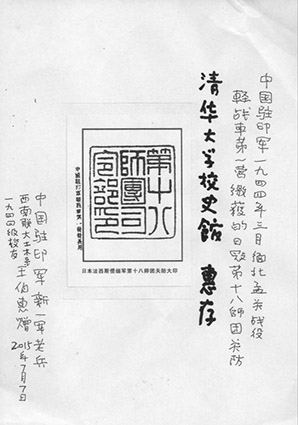 中国驻印军一九四四年三月缅北孟关战役
轻战车第一营缴获的日寇第十八师团关防
清华大学校史馆 惠存
第十八
師團司
令部印
日本法西斯侵缅军第十八师团关防大印
中国驻印军新一军老兵
西南联大土木系
一九四四级校友
王伯惠赠
2015年7月7日